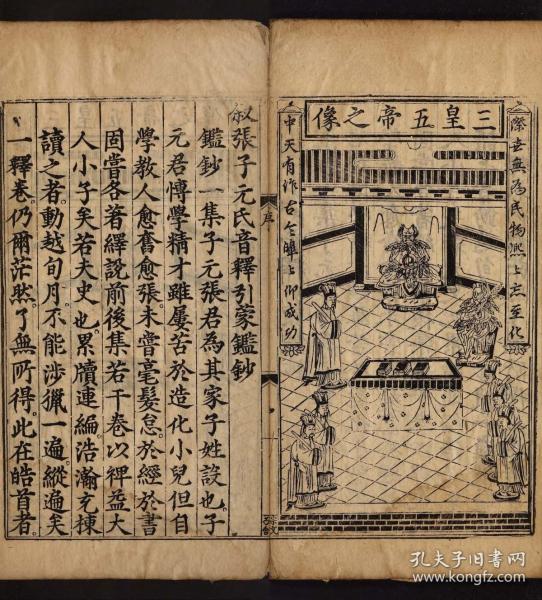 三皇五帝之像
際世無為民物熙々忘至化
中天有作古今皞々仰成功
序
叙張子元氏音釋引家鑑鈔
鑑鈔一集子元張君為其家子姓設也。子
元君博學精才雖屢苦於造化小兒但自
學教人愈奮愈張未嘗毫髮怠。於經於書
固嘗各著繹說前後集若干卷以裨益大
人小子矣若夫史也。累牘連編浩瀚充棟
讀之者。動越旬月。不能涉獵一遍縱遍矣
一釋卷。仍爾茫然。了無所得。此在皓首者。
孔夫子旧书网
www.kongfz.com